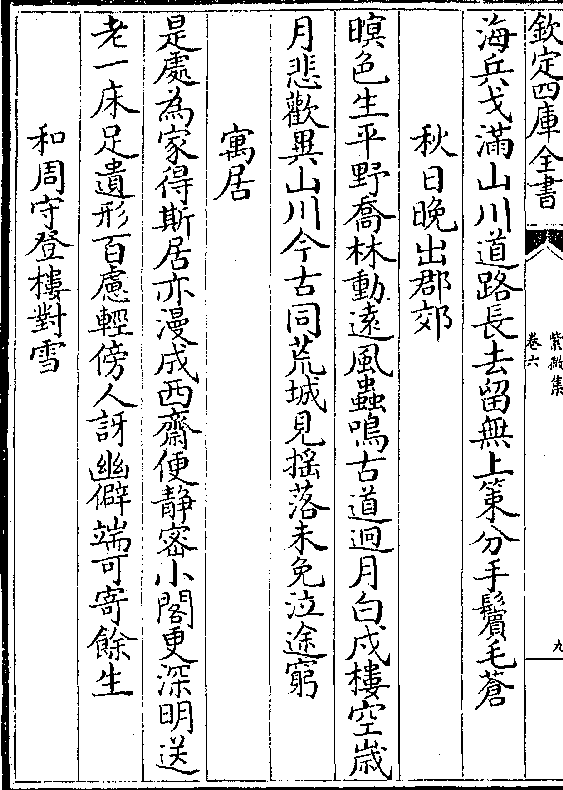 欽定四庫全書
紫微集
卷六
九
海兵戈滿山川道路長去留無上策分手鬢毛蒼
秋日晚出郡郊
暝色生平野喬林動遠風蟲鳴古道迥月白戍樓空歲
月悲歡異山川今古同荒城見摇落未免泣途窮
寓居
是處為家得斯居亦漫成西齋便静密小閣更深明送
老一床足遺形百慮輕傍人訝幽僻端可寄餘生
和周守登樓對雪